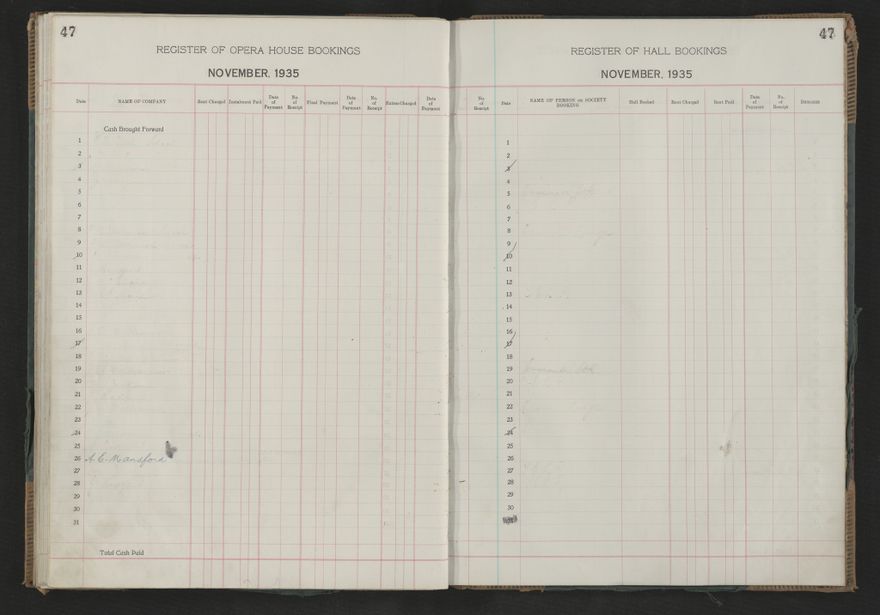 47
REGISTER OF OPERA HOUSE BOOKINGS
NOVEMBER, 1935
Date NAME OF COMPANY Rent Charged Instalment Paid Date of Payment No. of Receipt Final Payment Date of Payment No. of Receipt Extras Charged Date of Payment
Cash Brought Forward
1
2
3
4
5
6
7
8
9
10
11
12
13
14
15
16
17
18
19
20
21
22
23
24
25
26 A. C. Mansford
27
28
29
30
31
Total Cash Paid
47
REGISTER OF HALL BOOKINGS
NOVEMBER, 1935
No. of Receipt Date NAME OF PERSON OR SOCIETY BOOKING Hall Booked Rent Charged Rent Paid Date of Payment No. of Receipt REMARKS
1
2
3
4
5
6
7
8
9
10
11
12
13
14
15
16
17
18
19
20
21
22
23
24
25
26
27
28
29
30